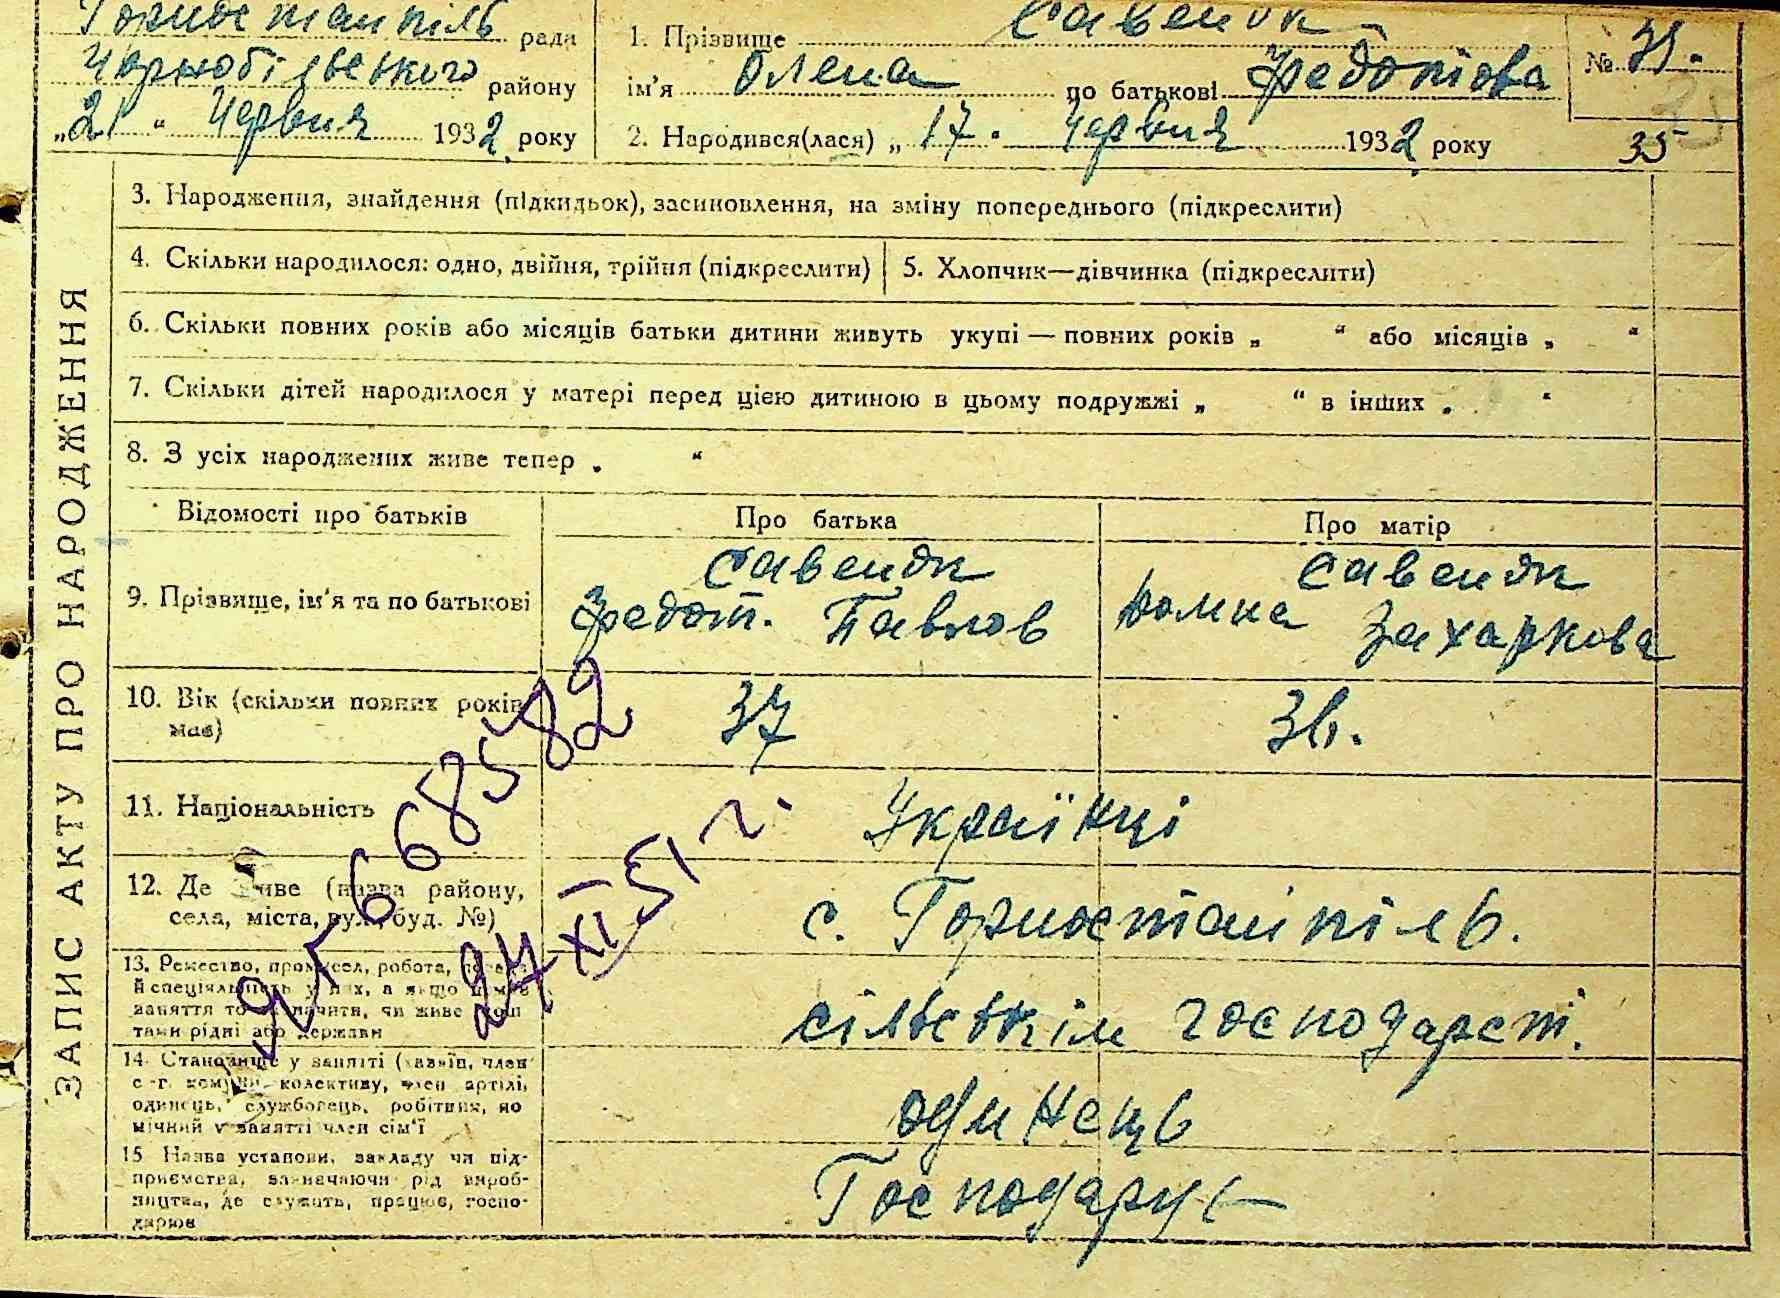 Горностайпіль рада
Чорнобільського району
„21“ Червня 1932 року
1. Прізвище Савенок
ім'я Олена по батькові Федотова
2. Народився(лася) „17. Червня 1932 року
№ 35.
35
ЗАПИС АКТУ ПРО НАРОДЖЕННЯ
3. Народження, знайдення (підкидьок), засиновлення, на зміну попереднього (підкреслити)
4. Скільки народилося: одно, двійня, трійня (підкреслити)
5. Хлопчик—дівчинка (підкреслити)
6. Скільки повних років або місяців батьки дитини живуть укупі — повних років „ “ або місяців „ “
7. Скільки дітей народилося у матері перед цією дитиною в цьому подружжі „ “ в інших „ “
8. З усіх народжених живе тепер „ “
Відомості про батьків
Про батька
Про матір
9. Прізвище, ім'я та по батькові
Савенок
Федот. Павлов
Савенок
Домна Захаркова
10. Вік (скільки повних років
мав)
37
36.
11. Національність
Українці
12. Де живе (назва району,
села, міста, вул., буд. №)
с. Горностайпіль.
13. Ремество, промисел, робота,
й спеціяльність у них, а якщо
заняття то зазначити, чи живе
тами рідні або держави
сільськім господарст.
14. Становище у занятті (хазяїн, член
с.-г. комуни, колективу, член артілі,
одинець, службовець, робітник, по
мічний у занятті член сім'ї
одинець
15 Назва установи, закладу чи під-
приємства, зазначаючи рід вироб-
ництва, де служить, працює, госпо-
дарює
Господарує
668582
27 XI 51 г.